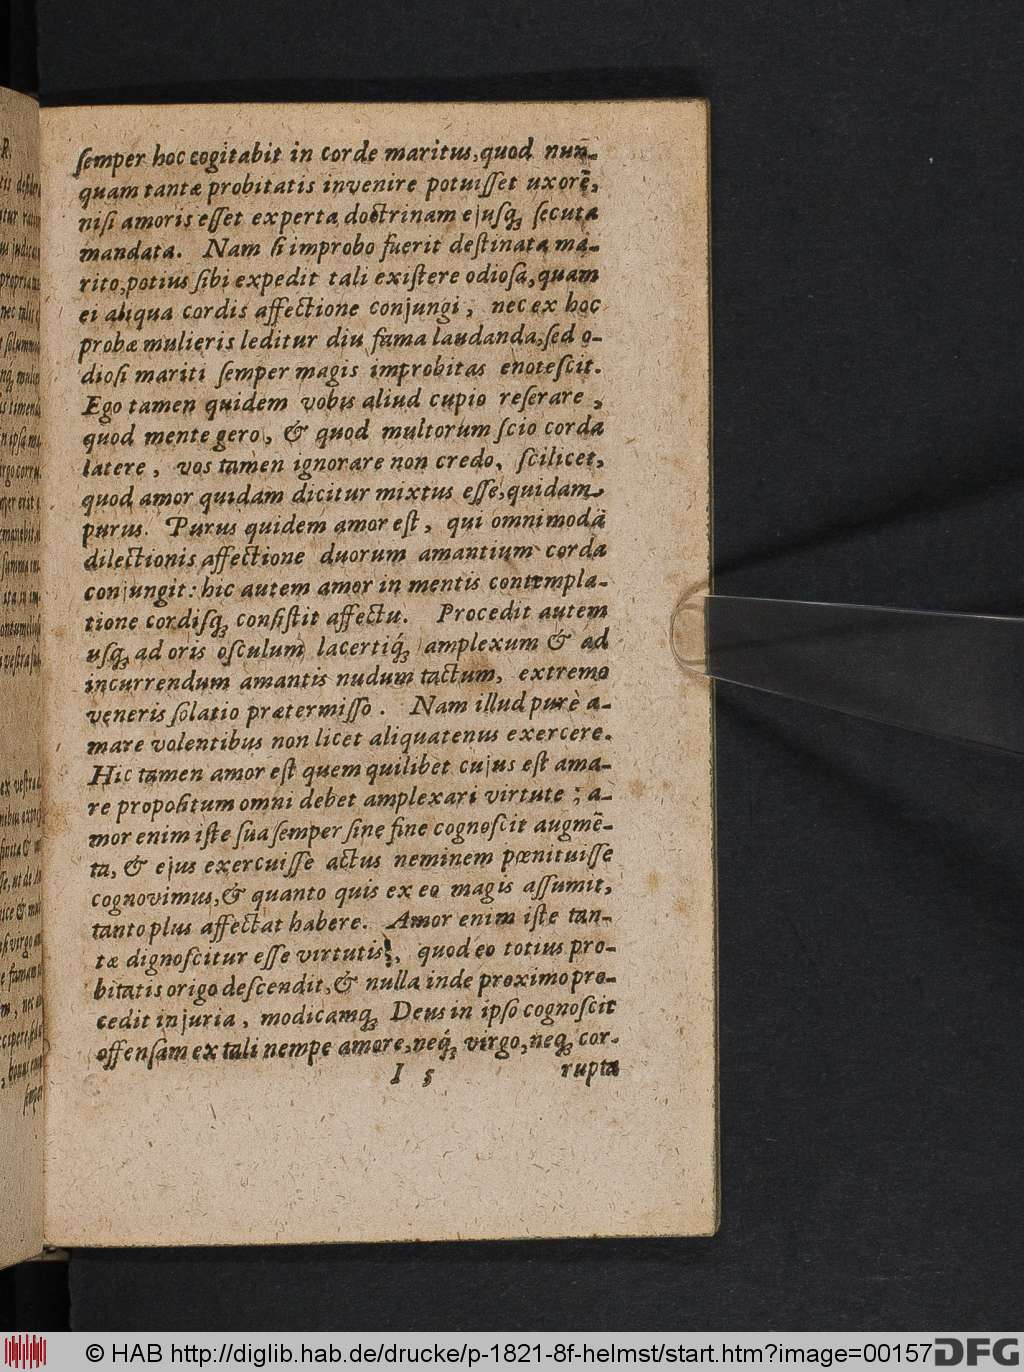 ſemper hoc cogitabit in corde maritus, quod nun̄-
quam tantæ probitatis invenire potuiſſet uxorē,
niſi amoris eſſet experta doctrinam ejuſq́; ſecuta
mandata. Nam ſi improbo fuerit deſtinata ma-
rito, potius ſibi expedit tali exiſtere odioſa, quam
ei aliqua cordis affectione conjungi, nec ex hoc
probæ mulieris leditur diu fama laudanda, ſed o-
dioſi mariti ſemper magis improbitas enoteſcit.
Ego tamen quidem vobis aliud cupio reſerare,
quod mente gero, & quod multorum ſcio corda
latere, vos tamen ignorare non credo, ſcilicet,
quod amor quidam dicitur mixtus eſſe, quidam
purus. Purus quidem amor eſt, qui omnimodâ
dilectionis affectione duorum amantium corda
conjungit: hic autem amor in mentis contempla-
tione cordiſq́; conſiſtit affectu. Procedit autem
uſq́; ad oris oſculum lacertiq́; amplexum & ad
incurrendum amantis nudum tactum, extremo
veneris ſolatio prætermiſſo. Nam illud purè a-
mare volentibus non licet aliquatenus exercere.
Hic tamen amor eſt quem quilibet cujus eſt ama-
re propoſitum omni debet amplexari virtute; a-
mor enim iſte ſua ſemper ſine fine cognoſcit augmē-
ta, & ejus exercuiſſe actus neminem pœnituiſſe
cognovimus, & quanto quis ex eo magis aſſumit,
tanto plus affectat habere. Amor enim iſte tan-
tæ dignoſcitur eſſe virtutis, quod eo totius pro-
bitatis origo deſcendit, & nulla inde proximo pro-
cedit injuria, modicamq́; Deus in ipſo cognoſcit
offenſam ex tali nempe amore, neq́; virgo, neq́; cor-
I 5 rupta
© HAB http://diglib.hab.de/drucke/p-1821-8f-helmst/start.htm?image=00157
DFG